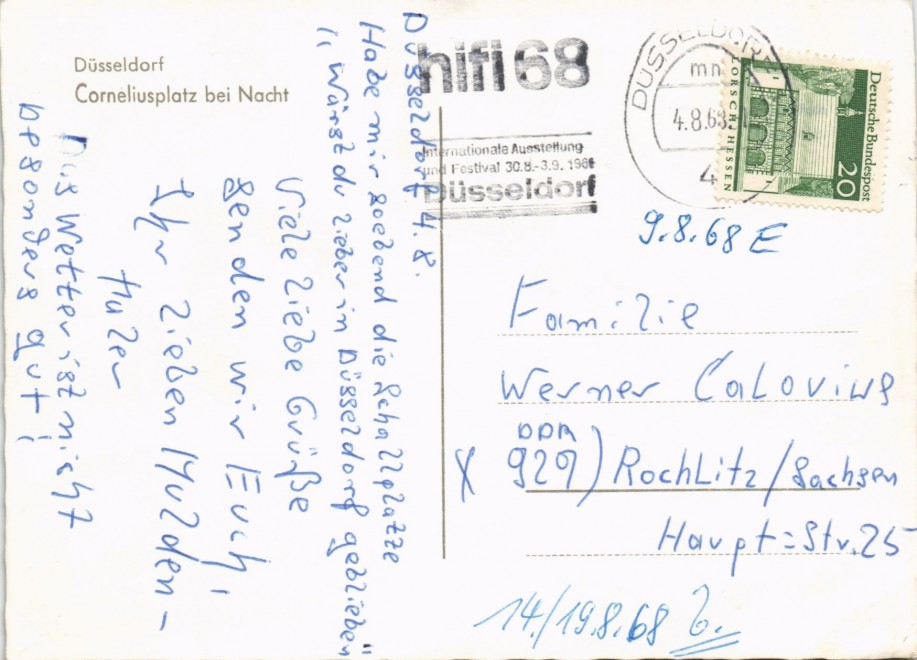 Düsseldorf
Corneliusplatz bei Nacht
hifi 68
Internationale Ausstellung
und Festival 30.8.-3.9.1968
Düsseldorf
DÜSSELDORF
mn
4.8.68
4
Deutsche Bundespost
20
LORSCH/HESSEN
Düsseldorf 4.8.
Habe mir soebend die Schallplatte
"Wärst du lieber in Düsseldorf geblieben"
Viele liebe Grüße
senden wir Euch,
Ihr lieben Mulden-
thaler
Das Wetter ist nicht
besonders gut!
9.8.68 E
Familie
Werner Calovius
DDR
X 929) Rochlitz/Sachsen
Haupt=Str. 25
14./19.8.68 b.